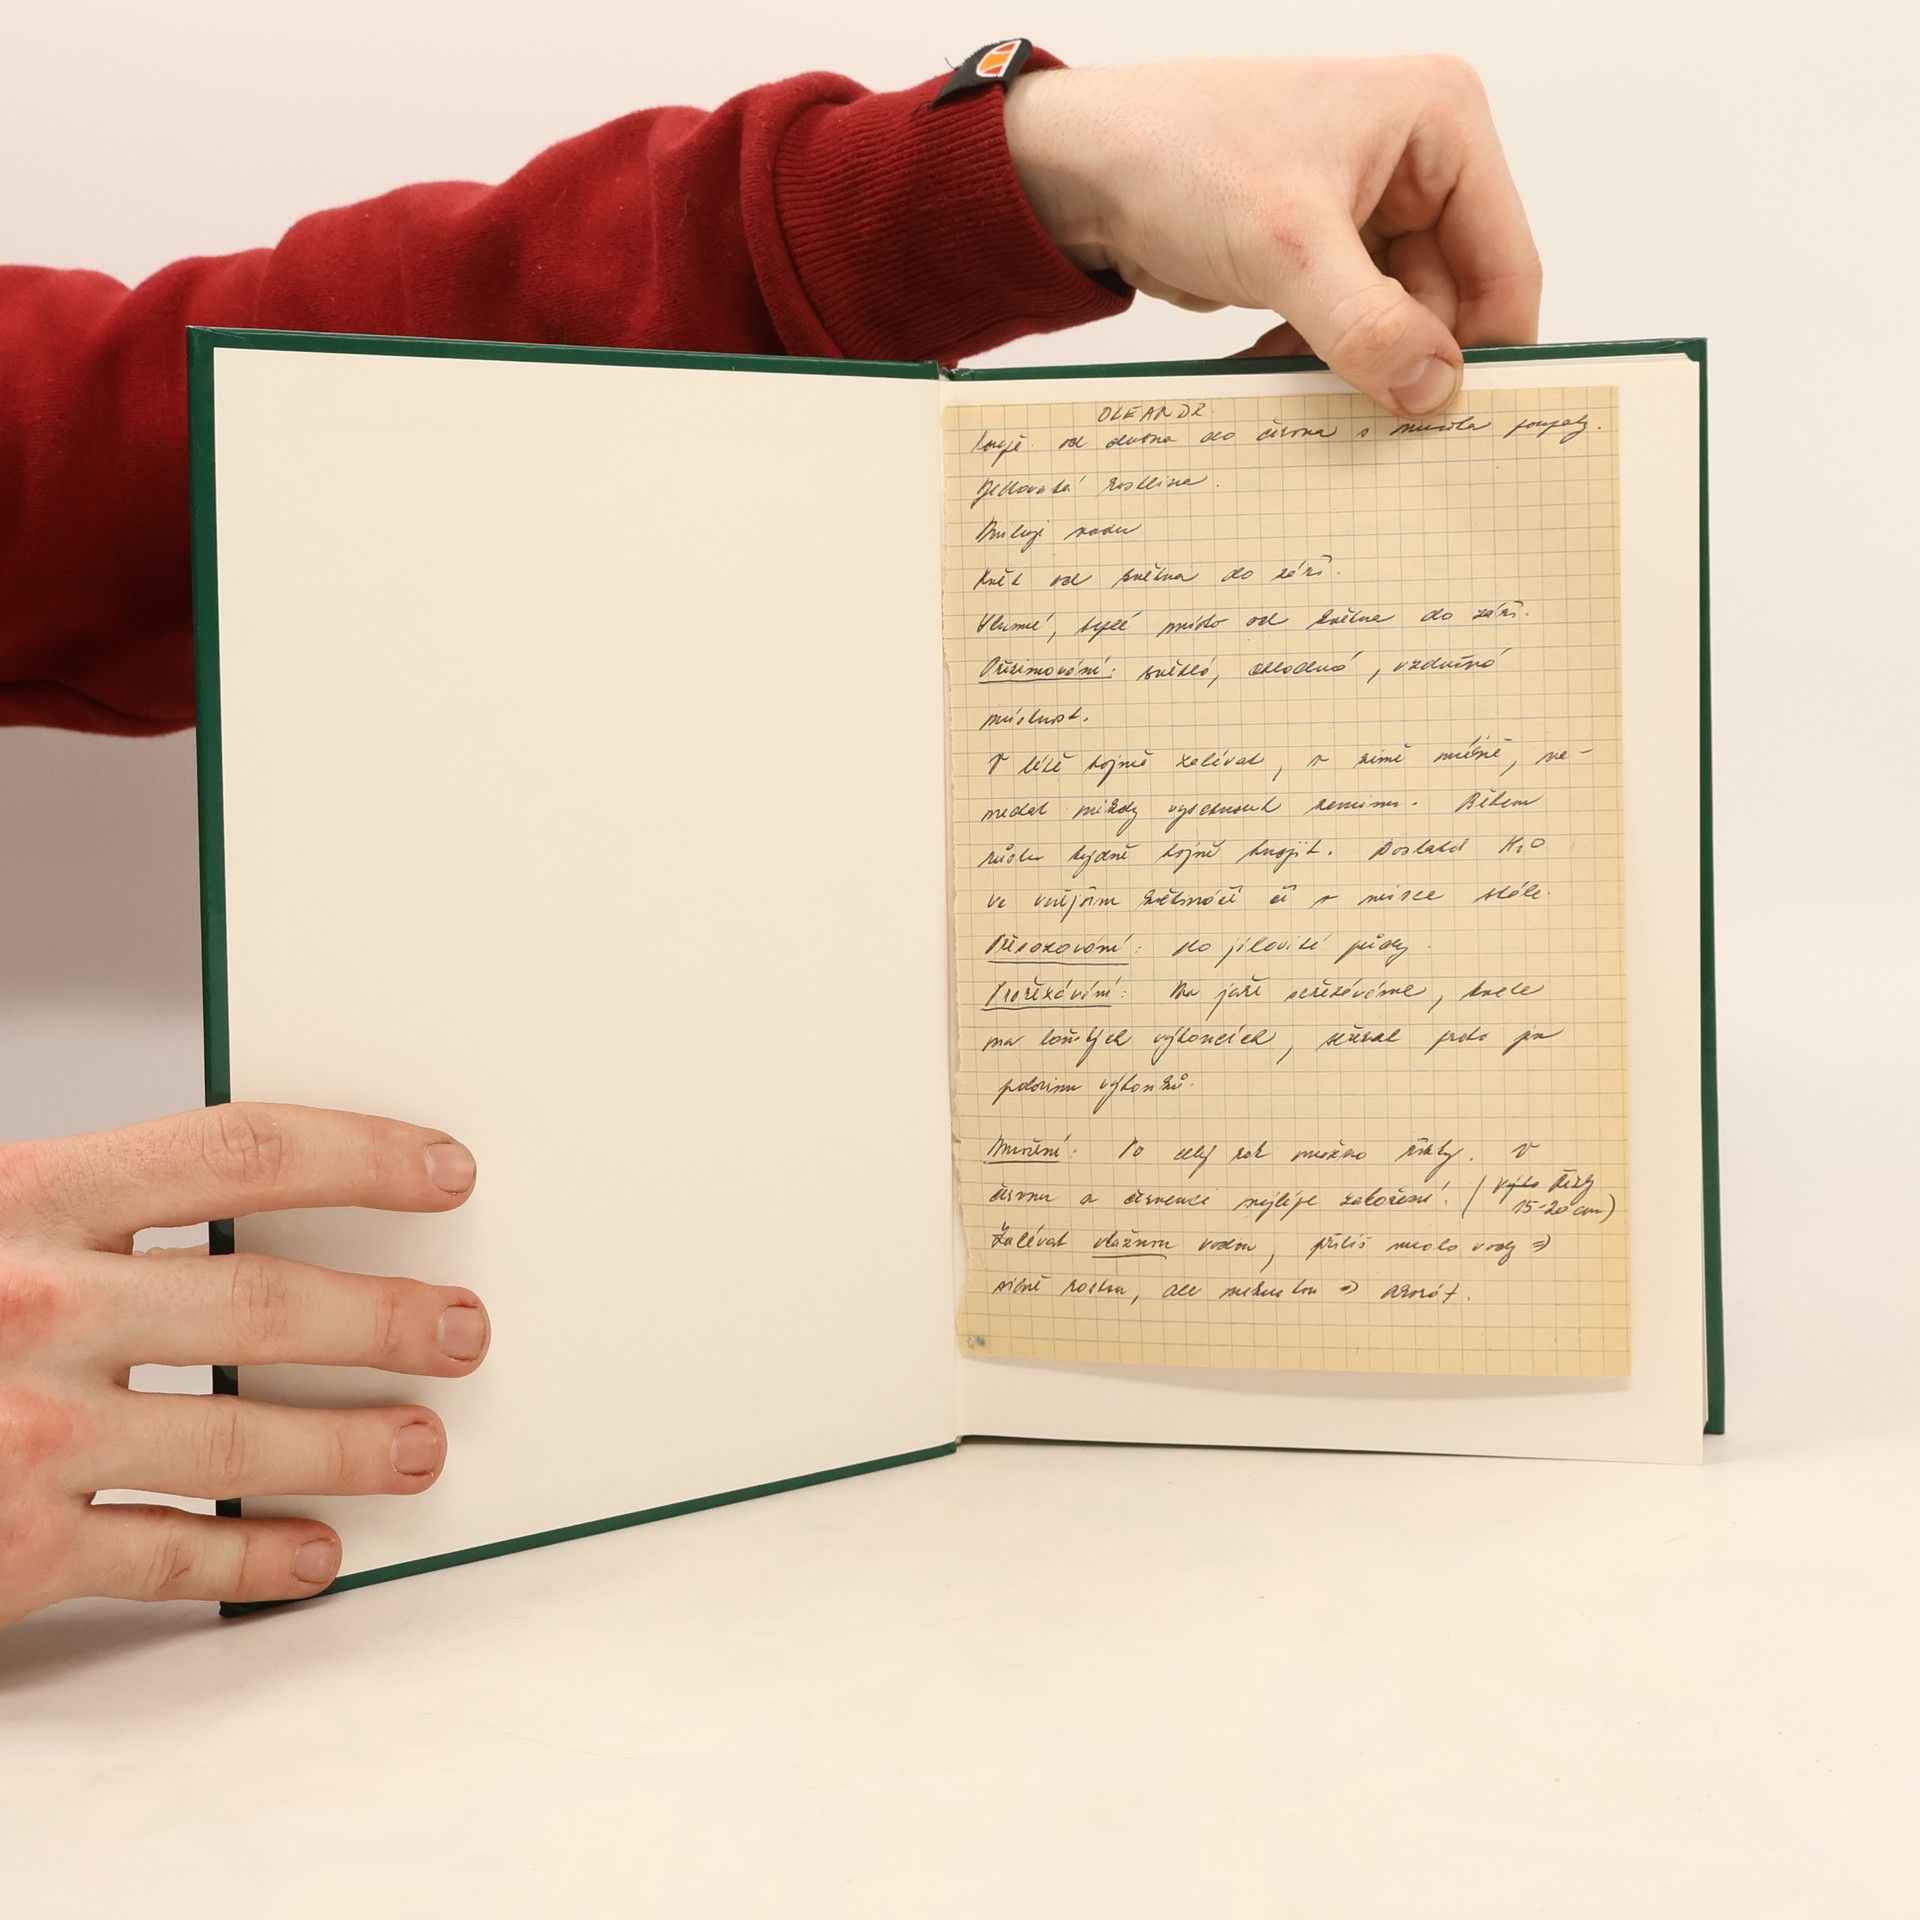 OLEANDR
Koupě: od dubna do června s mnoha poupaty.
Jedovatá rostlina.
Miluje vodu
Květ od května do září.
Slunné, teplé místo od května do září.
Přezimování: světlá, chladná, vzdušná
místnost.
V létě hojně zalévat, v zimě méně, ne-
nechat nikdy vyschnout zeminu. Během
růstu týdně hojně hnojit. Dostatek H₂O
ve vnějším květináči či v misce stále.
Přesazování: do jílovité půdy.
Prořezávání: Na jaře seřezáváme, kvete
na loňských výhoncích, seřezat proto jen
polovinu výhonků.
Množení: Po celý rok možno řízky. V
červnu a červenci nejlépe zakoření! (
řízky
15-20 cm)
Zalévat vlažnou vodou, příliš mnoho vody ⇒
silně rostou, ale nekvetou ⇒